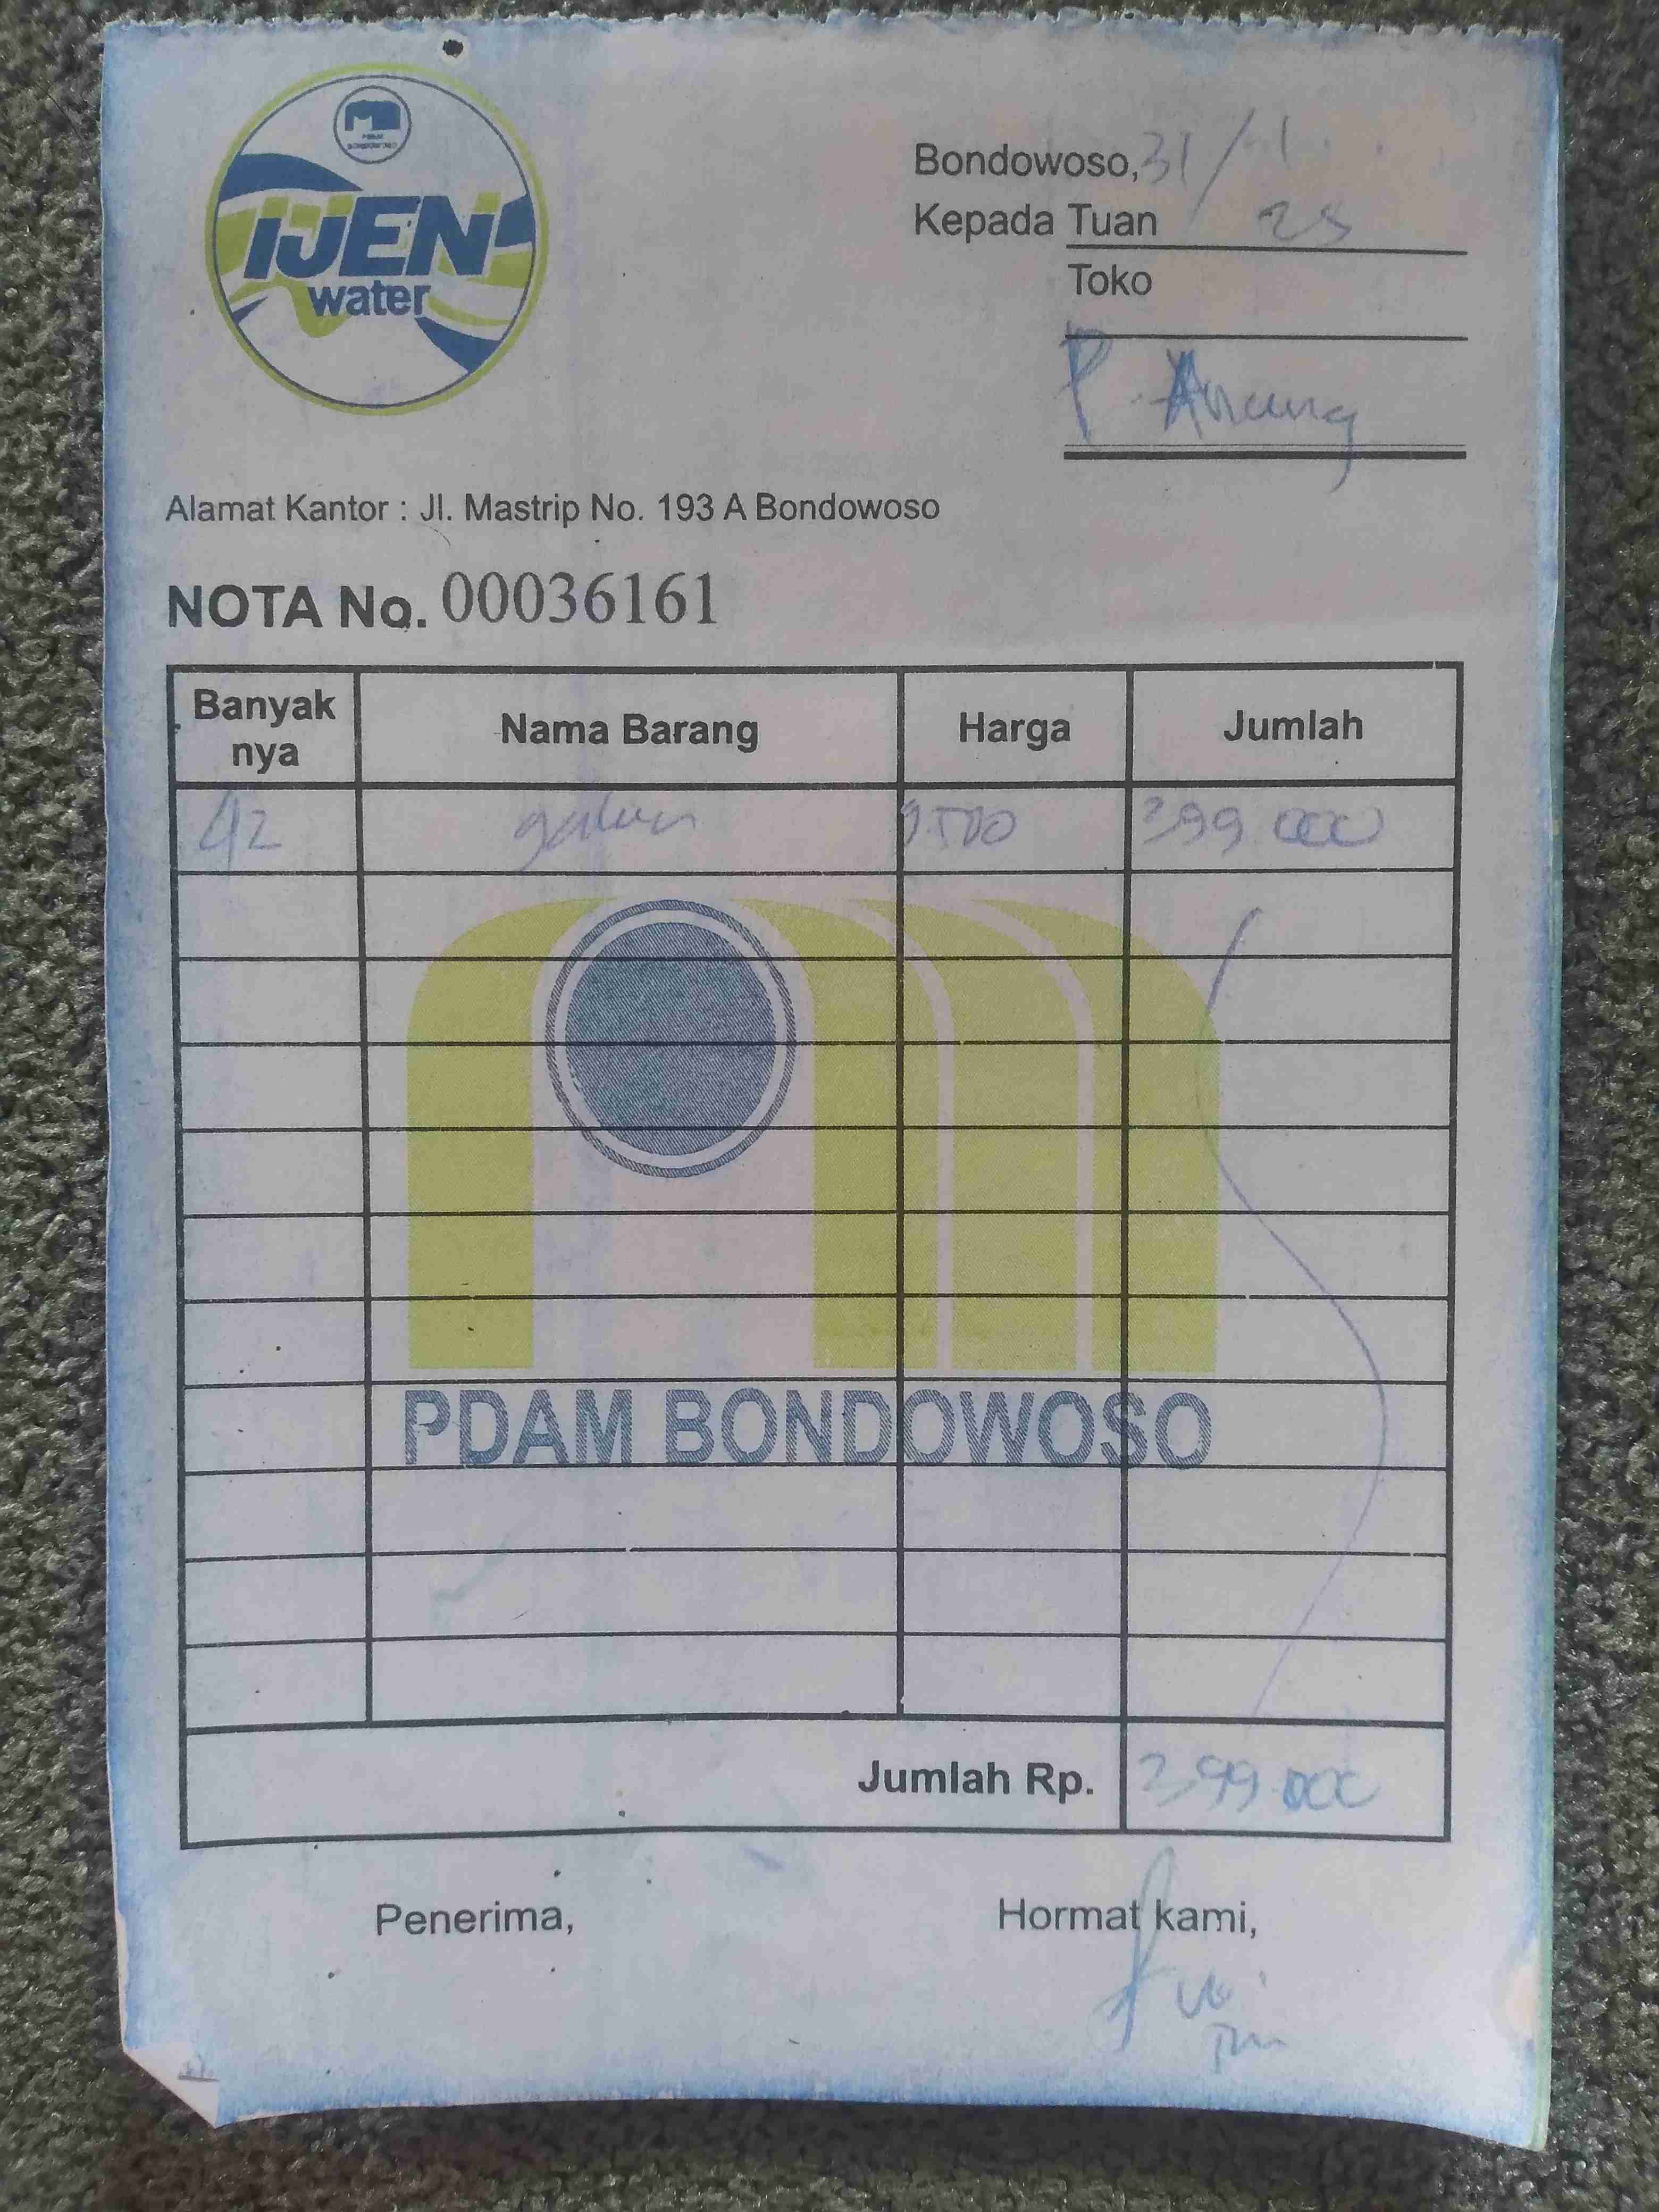 PDAM
BONDOWOSO
IJEN
water
Bondowoso, 31/1
Kepada Tuan 25
Toko
P. Anung
Alamat Kantor : Jl. Mastrip No. 193 A Bondowoso
NOTA No. 00036161
Banyak nya Nama Barang Harga Jumlah
42 galon 9.500 399.000
PDAM BONDOWOSO
Jumlah Rp. 399.000
Penerima, Hormat kami,